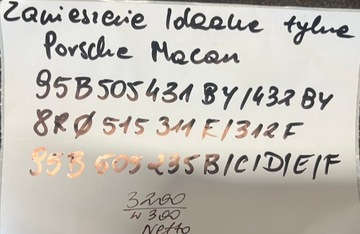 Zawieszenie Idealne tylne
Porsche Macan
95B505431 BY/432 BY
8RØ 515 311 E/312 F
95B 505 235B/C/D/E/F
3200
w 300
Netto